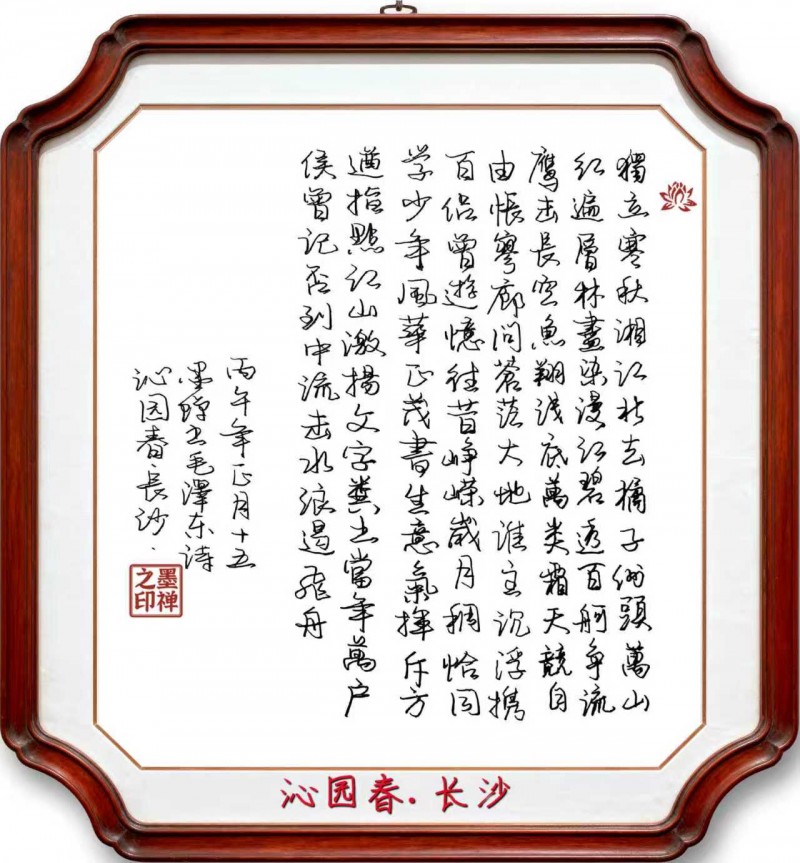 獨立寒秋湘江北去橘子洲頭萬山
红遍層林盡染漫江碧透百舸争流
鹰击長空魚翔浅底萬类霜天競自
由悵寥廓问蒼茫大地谁主沉浮携
百侣曾遊憶往昔崢嶸歲月稠恰同
学少年風華正茂書生意氣揮斥方
遒指點江山激揚文字糞土當年萬户
侯曾记否到中流击水浪遏飛舟
丙午年正月十五
墨禅书毛澤东诗
沁园春長沙.
墨禅之印
沁园春.长沙